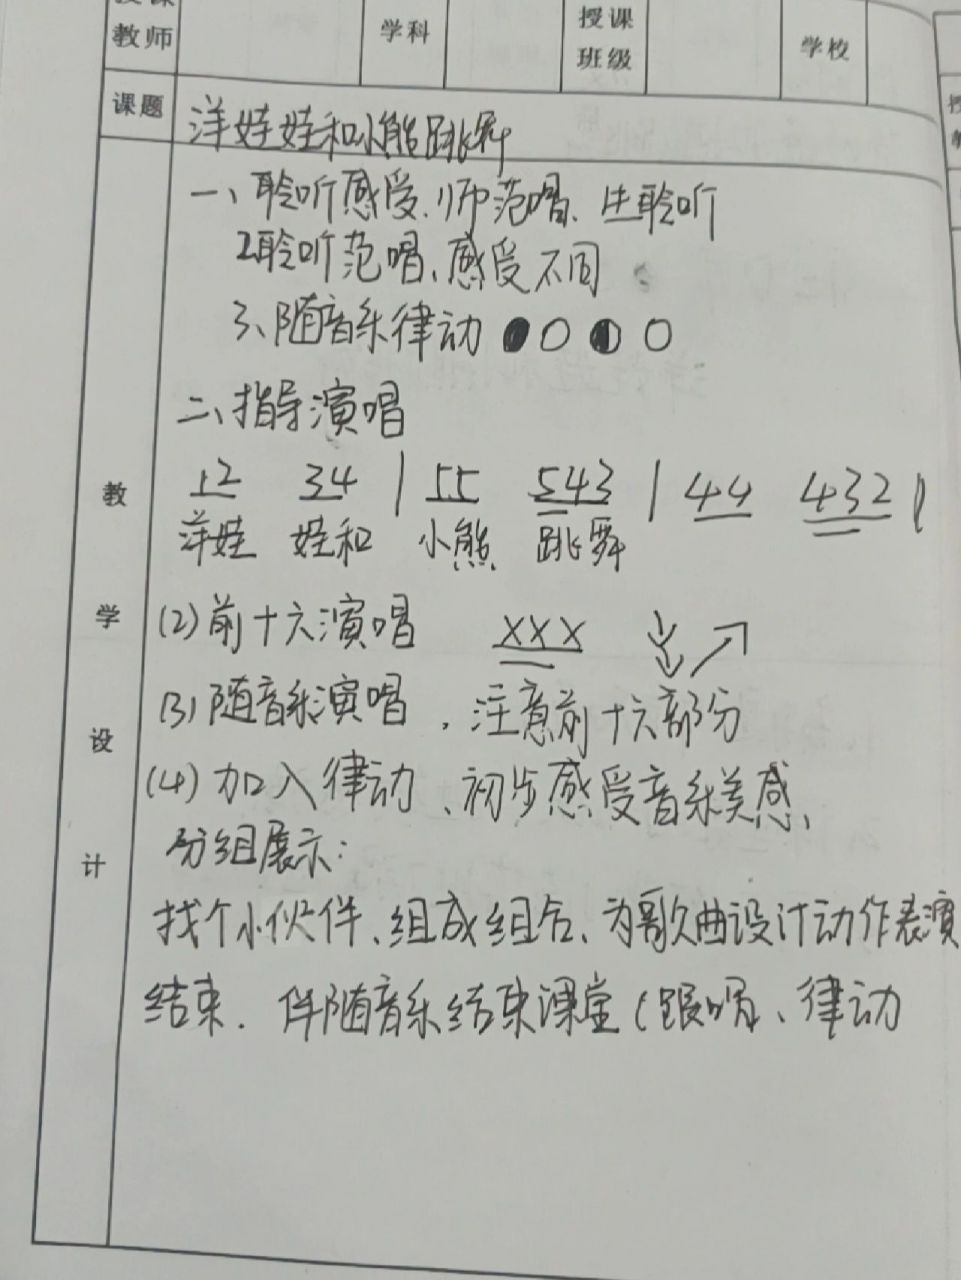 教师 学科 授课班级 学校
课题 洋娃娃和小熊跳舞
一、聆听感受.师范唱、生聆听
2聆听范唱、感受不同
3、随音乐律动
二、指导演唱
12 34 | 55 543 | 44 432 |
洋娃 娃和 小熊 跳舞
(2)前十六演唱 XXX
(3)随音乐演唱,注意前十六部分
(4)加入律动、初步感受音乐美感、
分组展示:
找个小伙伴、组成组合、为歌曲设计动作表演
结束.伴随音乐结束课堂(跟唱、律动
教学设计